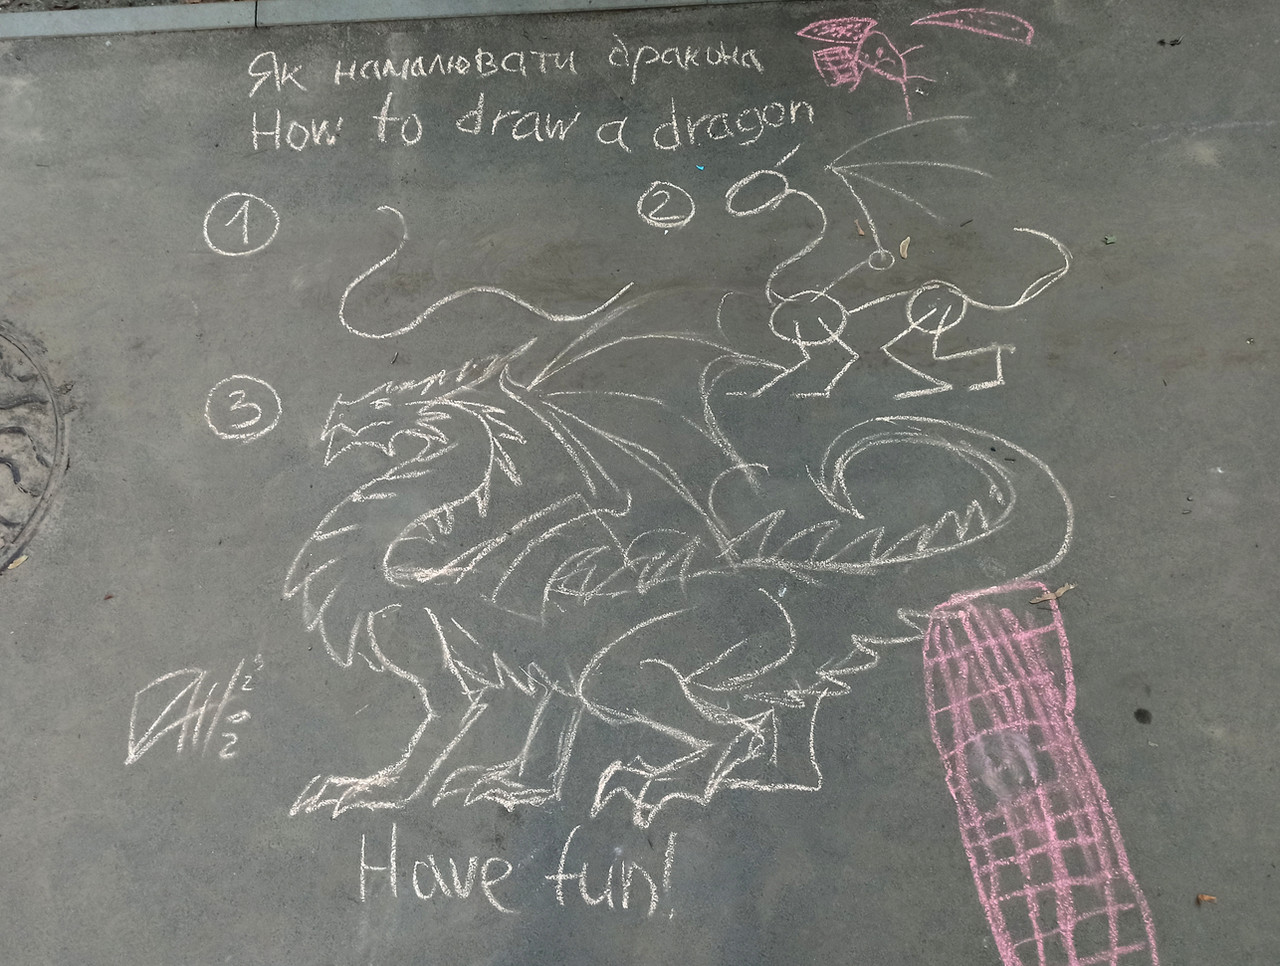 Як намалювати дракона
How to draw a dragon
1
2
3
Have fun!